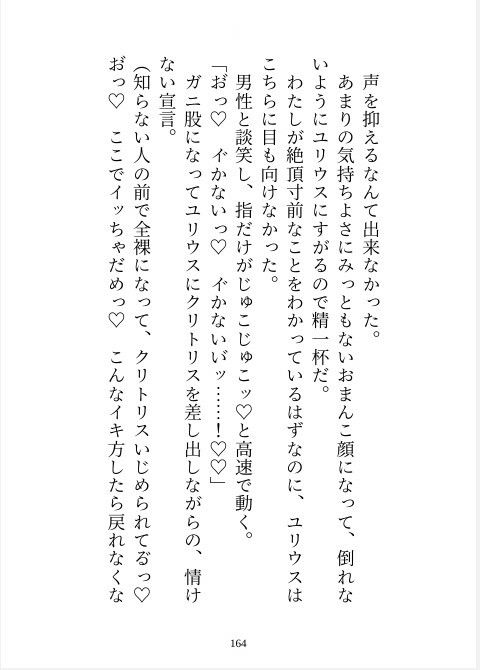 声を抑えるなんて出来なかった。
あまりの気持ちよさにみっともないおまんこ顔になって、倒れな
いようにユリウスにすがるので精一杯だ。
わたしが絶頂寸前なことをわかっているはずなのに、ユリウスは
こちらに目も向けなかった。
男性と談笑し、指だけがじゅこじゅこッ♡と高速で動く。
「お゛っ♡　イ゛かないっ♡　イ゛かないい゛ッ……！♡♡」
ガニ股になってユリウスにクリトリスを差し出しながらの、情け
ない宣言。
（知らない人の前で全裸になって、クリトリスいじめられてる゛っ♡
お゛っ♡　ここでイッちゃだめっ♡　こんなイキ方したら戻れなくな
164